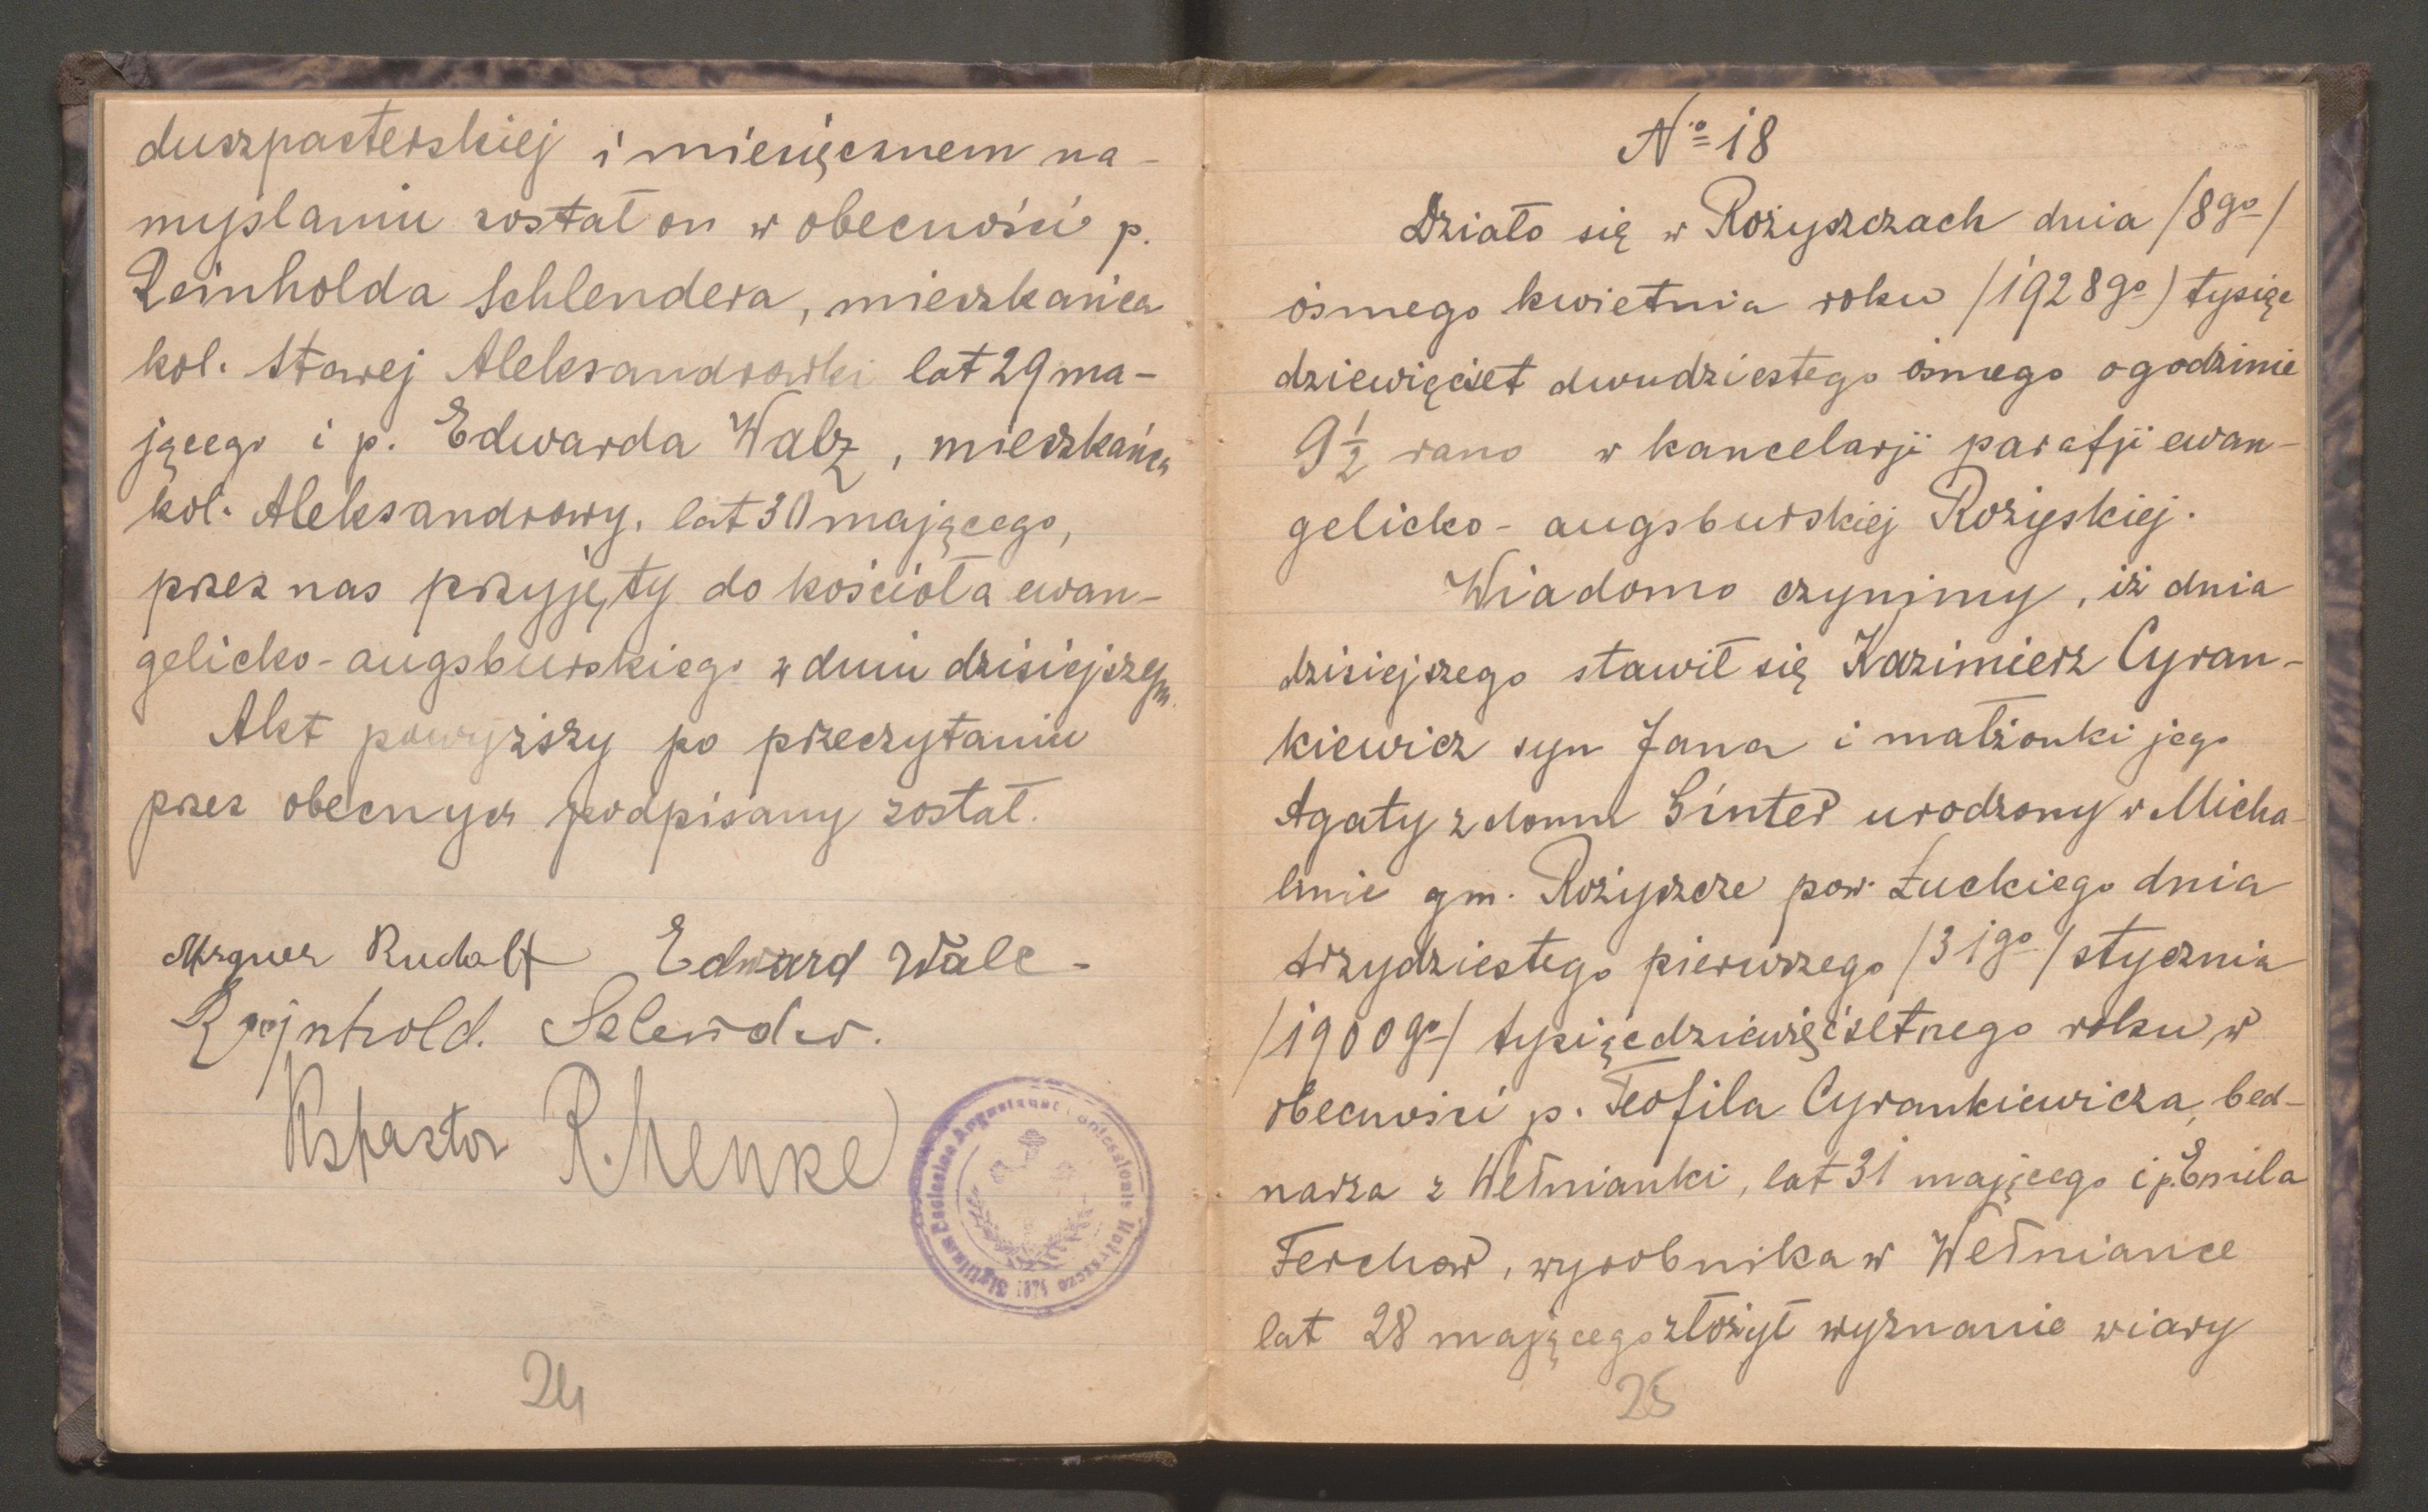 duszpasterskiej i miesięcznem na-
myslaniu został on w obecności p.
Reinholda Schlendera, mieszkańca
kol. Starej Aleksandrówki lat 29 ma-
jącego i p. Edwarda Walz, mieszkańca
kol. Aleksandrowy, lat 30 mającego,
przez nas przyjęty do kościoła ewan-
gelicko-augsburskiego w dniu dzisiejszym.
Akt powyższy po przeczytaniu
przez obecnych podpisany został.
Rudolf Edward Walc -
Rejnhold. Szlender.
Ks pastor R. Henke
Sigillum Ecclesiae Augustanae Confessionis
24
No 18
Działo się w Rożyszczach dnia /8go/
ósmego kwietnia roku /1928go/ tysiąc
dziewięćset dwudziestego ósmego o godzinie
9½ rano w kancelarji parafji ewan-
gelicko-augsburskiej Rożyskiej.
Wiadomo czynimy, iż dnia
dzisiejszego stawił się Kazimierz Cyran-
kiewicz syn Jana i małżonki jego
Agaty z domu Binter urodzony w Micha-
linie gm. Rożyszcze pow. Łuckiego dnia
trzydziestego pierwszego /31go/ stycznia
/1900go/ tysiącdziewięćsetnego roku, w
obecności p. Teofila Cyrankiewicza, bed-
narza z Wełnianki, lat 31 mającego i p. Emila
Ferchow, wyrobnika w Wełniance
lat 28 mającego złożył wyznanie wiary
25